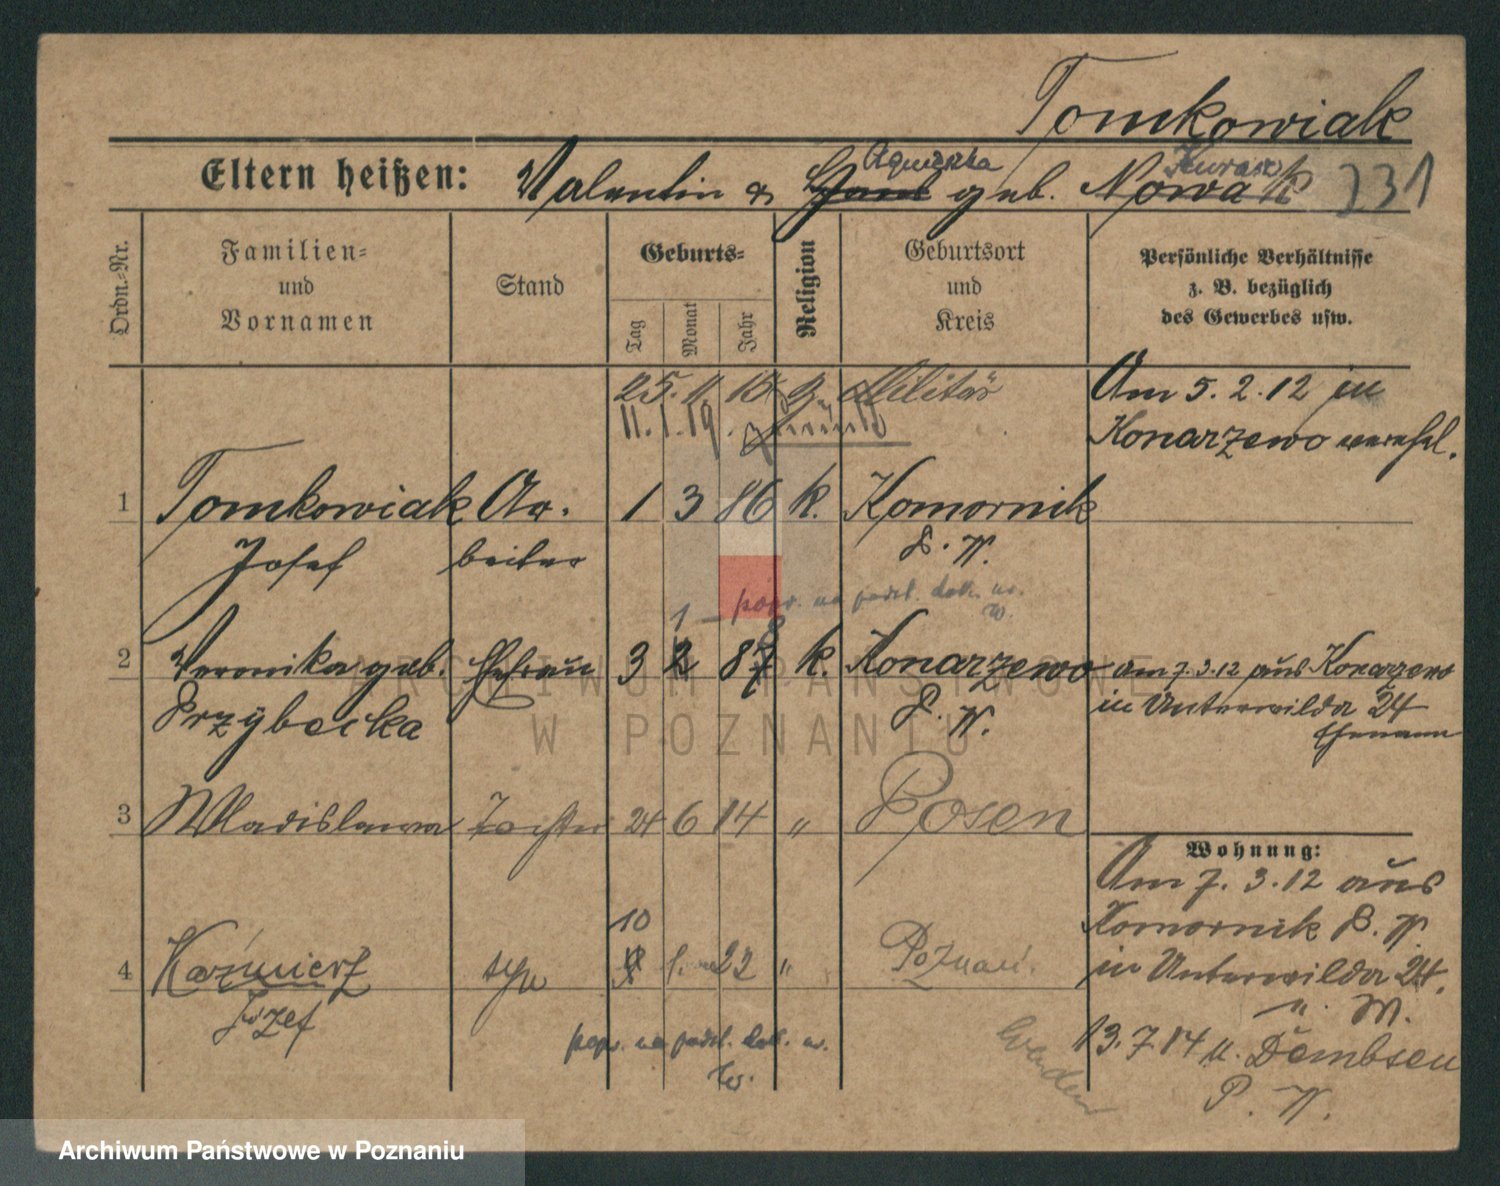 Tomkowiak
Agnieszka
Eltern heißen: Valentin & geb. Nowak 331
Ordn.-Nr.
Familien-
und
Vornamen
Stand
Geburts-
Tag
Monat
Jahr
Religion
Geburtsort
und
Kreis
Persönliche Verhältnisse
z. B. bezüglich
des Gewerbes usw.
25. 11 Militär
11. 1. 19.
Am 5. 2. 12 in
Konarzewo verehel.
1 Tomkowiak Ar- 1 3 86 k. Komornik
Josef beiter P. W.
1 – popr. na podst. dok. ur.
2 Veronika geb. Ehefrau 3 87 k. Konarzewo
Przybecka P. W.
am 7. 3. 12 aus Konarzewo
in Unterwilda 24
Ehemann
3 Wladislawa Tochter 24 6 14 " Posen
Wohnung:
Am 7. 3. 12 aus
Komornik P. W
in Unterwilda 24.
13. 7. 14 n. Dembsen
P. W.
10
4 Kazimierz syn 22 " Poznań.
Józef
popr. na podst. dok. ur.
ARCHIWUM PAŃSTWOWE
W POZNANIU
Archiwum Państwowe w Poznaniu